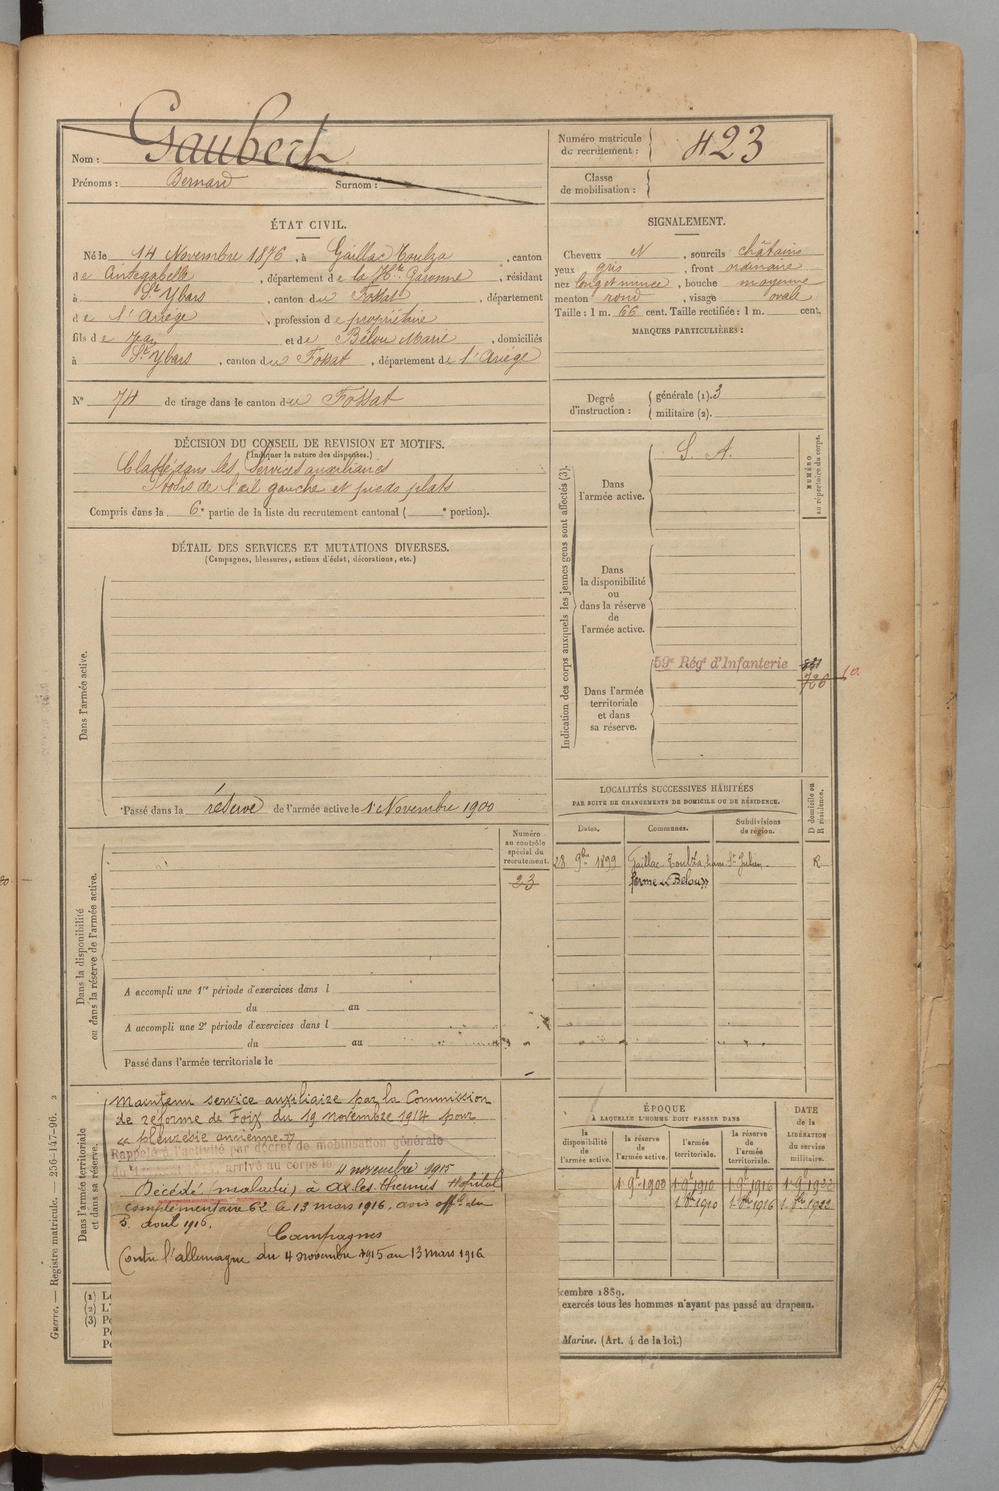 Nom : Gaubert
Prénoms : Bernard Surnom :
Numéro matricule de recrutement : 423
Classe de mobilisation :
ÉTAT CIVIL.
Né le 14 Novembre 1876, à Gaillac Toulza, canton
de Cintegabelle, département de la Hte Garonne, résidant
à St Ybars, canton du Fossat, département
de l'Ariège, profession de propriétaire
fils de Jean et de Bélou Marie, domiciliés
à St Ybars, canton du Fossat, département de l'Ariège
No 74 de tirage dans le canton du Fossat
SIGNALEMENT.
Cheveux N, sourcils châtains
yeux gris, front ordinaire
nez long et mince, bouche moyenne
menton rond, visage ovale
Taille : 1 m. 66 cent. Taille rectifiée : 1 m. cent.
MARQUES PARTICULIÈRES :
Degré d'instruction : générale (1). 3
militaire (2).
DÉCISION DU CONSEIL DE REVISION ET MOTIFS.
(Indiquer la nature des dispenses.)
Classé dans les Services auxiliaires
Ptosis de l'œil gauche et pieds plats
Compris dans la 6e partie de la liste du recrutement cantonal ( e portion).
DÉTAIL DES SERVICES ET MUTATIONS DIVERSES.
(Campagnes, blessures, actions d'éclat, décorations, etc.)
Dans l'armée active.
Passé dans la réserve de l'armée active le 1 Novembre 1900
Indication des corps auxquels les jeunes gens sont affectés (3).
NUMÉRO au répertoire du corps.
Dans l'armée active.
S. A.
Dans la disponibilité ou dans la réserve de l'armée active.
Dans l'armée territoriale et dans sa réserve.
59e Régt d'Infanterie
Numéro au contrôle spécial du recrutement.
23
Dans la disponibilité ou dans la réserve de l'armée active.
A accompli une 1re période d'exercices dans l
du au
A accompli une 2e période d'exercices dans l
du au
Passé dans l'armée territoriale le
LOCALITÉS SUCCESSIVES HABITÉES
PAR SUITE DE CHANGEMENTS DE DOMICILE OU DE RÉSIDENCE.
Dates. Communes. Subdivisions de région. D domicile ou R résidence.
28 9bre 1899 Gaillac-Toulza, ham. St Julien R
ferme « Bélou »
Dans l'armée territoriale et dans sa réserve.
Maintenu service auxiliaire par la Commission
de réforme de Foix du 19 novembre 1914 pour
« pleurésie ancienne »
Rappelé à l'activité par décret de mobilisation générale
arrivé au corps le 4 novembre 1915
Décédé (maladie) à Ax-les-Thermes Hopital
complémentaire 62 le 13 mars 1916, avis offl. du
5 avril 1916.
Campagnes
Contre l'allemagne du 4 novembre 1915 au 13 mars 1916
ÉPOQUE
À LAQUELLE L'HOMME DOIT PASSER DANS
la disponibilité de l'armée active. la réserve de l'armée active. l'armée territoriale. la réserve de l'armée territoriale.
DATE de la LIBÉRATION du service militaire.
1 9e 1900 1 9e 1910 1 9e 1916 1 9e 1922
1 8bre 1910 1 8bre 1916 1 8bre 1922
(1) Le
(2) L'
(3) Pe
Po
Po
cembre 1889.
exercés tous les hommes n'ayant pas passé au drapeau.
Marine. (Art. 4 de la loi.)
Guerre. — Registre matricule. — 256-147-96. 2